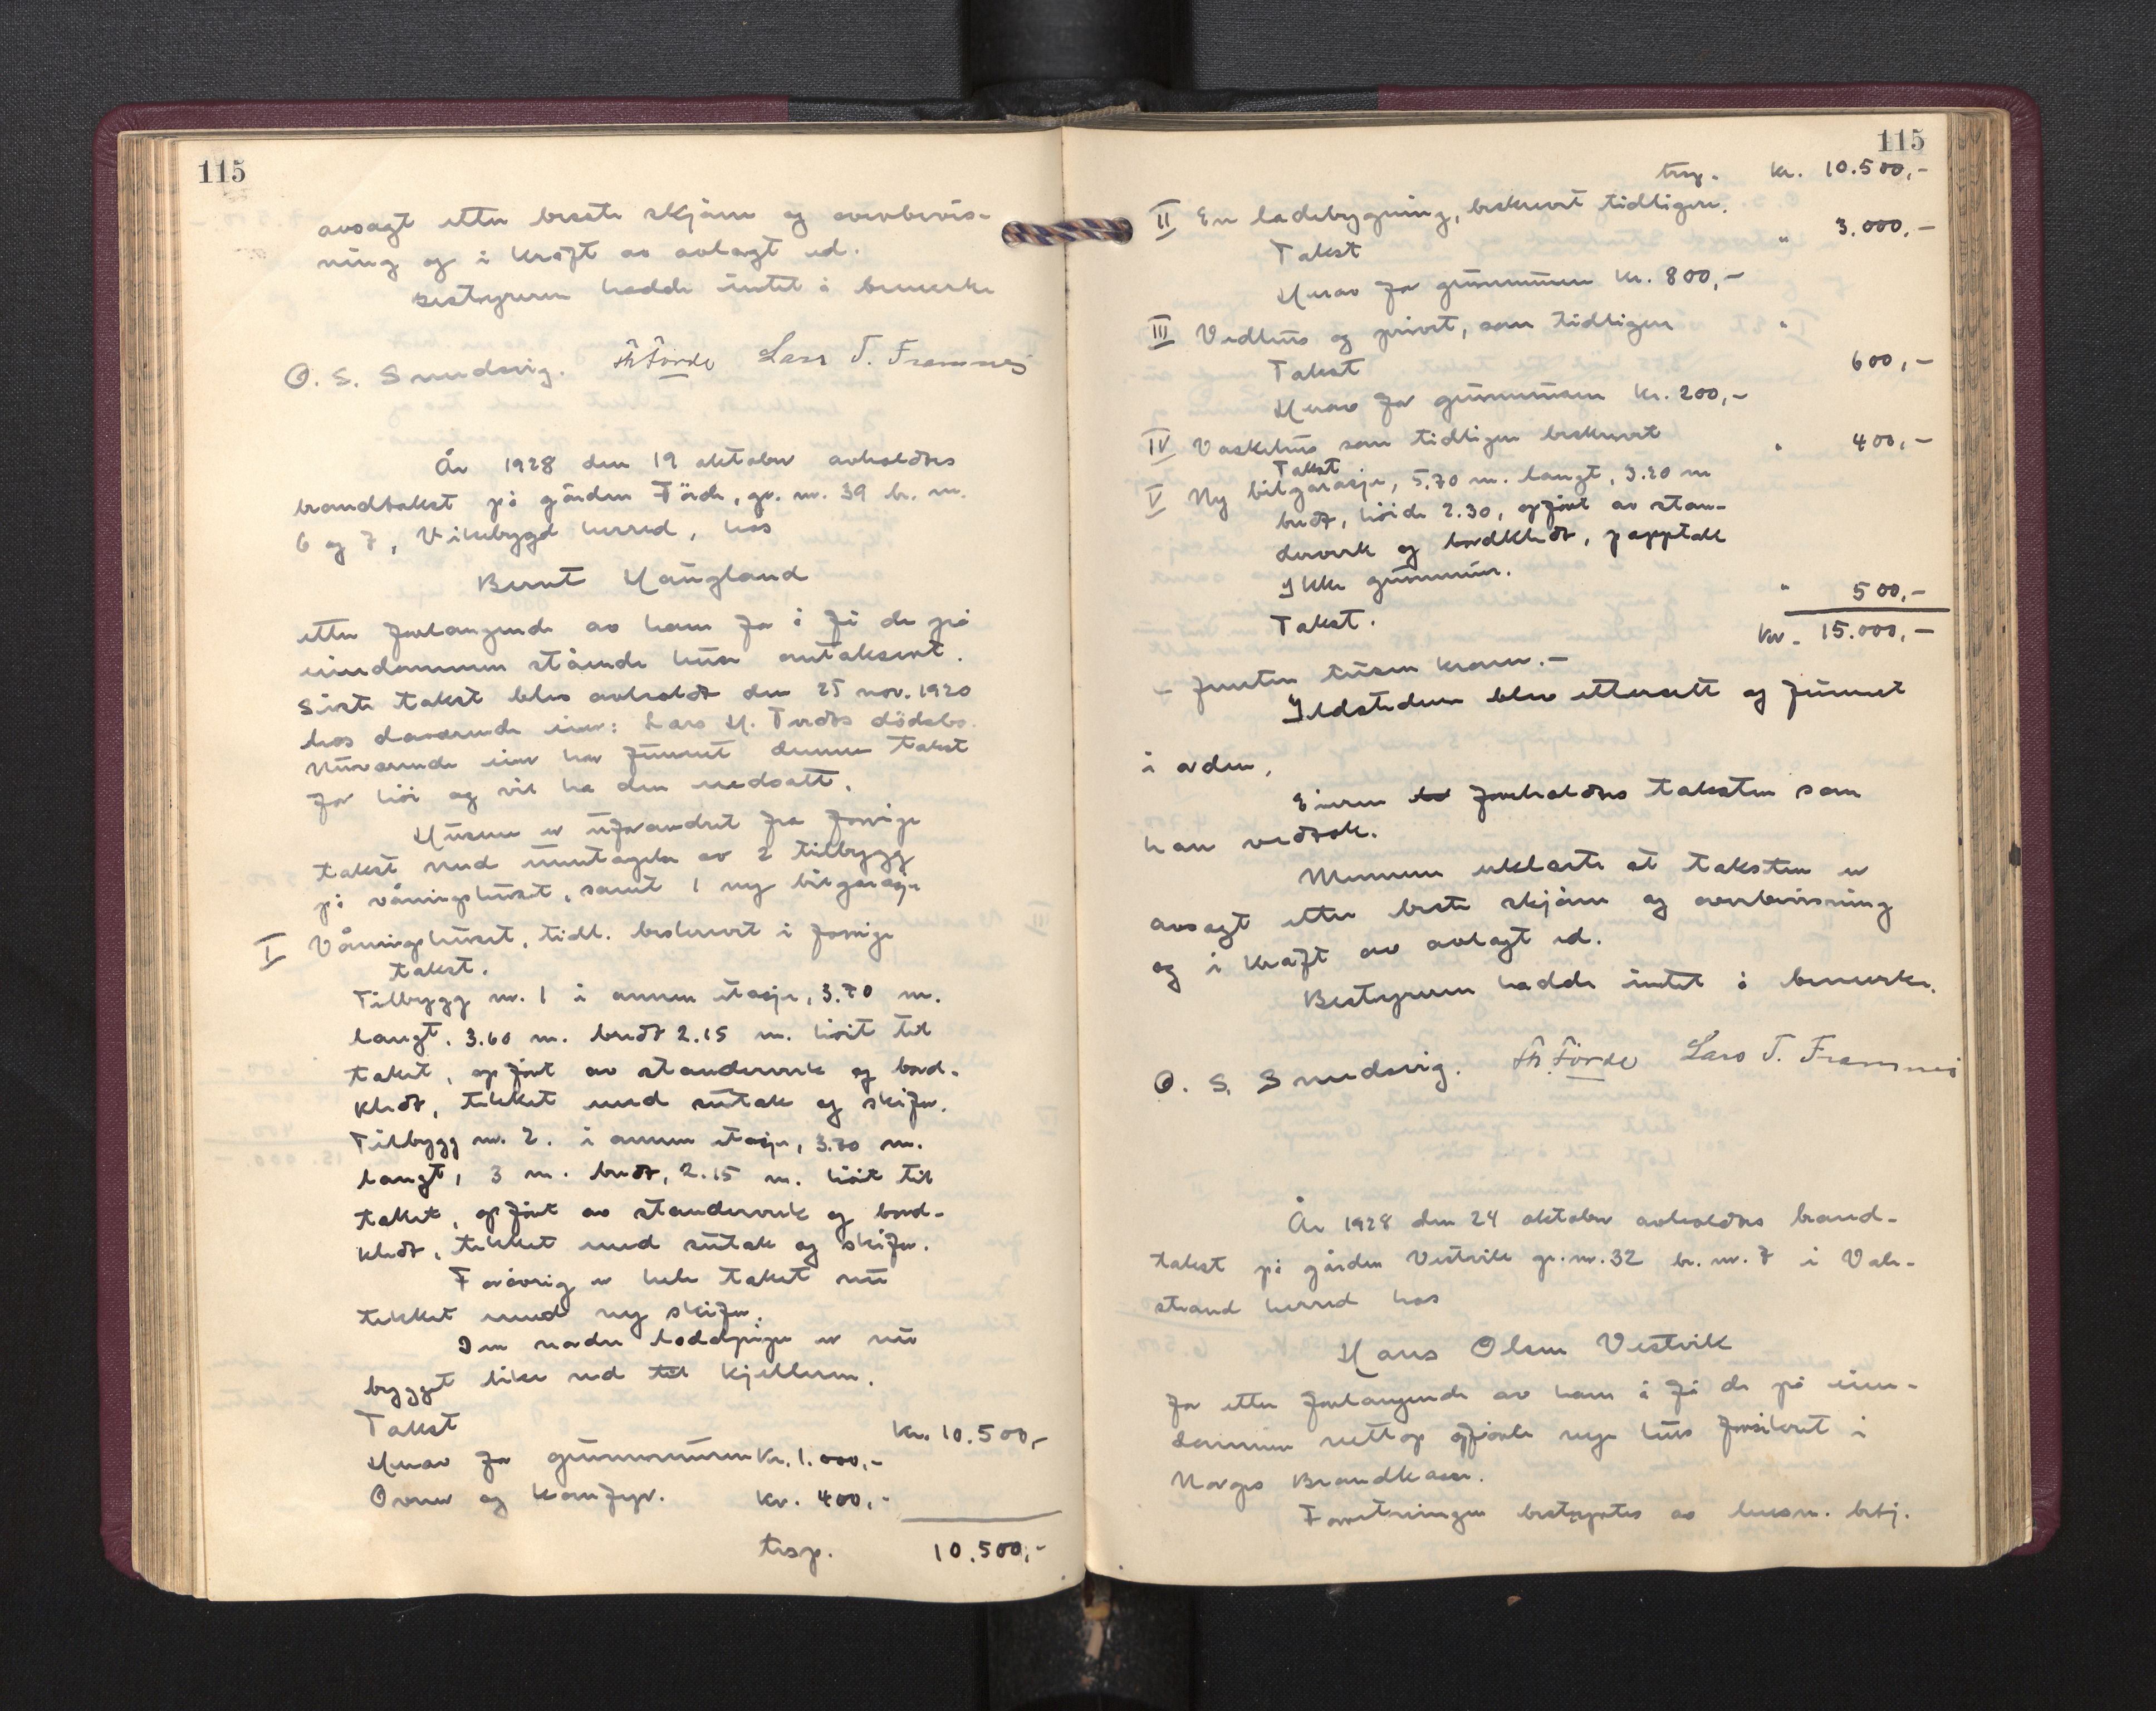 115
avsagt etter beste skjönn og overbevis-
ning og i kraft av avlagt ed.
Bestyreren hadde intet å bemerke
O. S. Smedsvig. Th Förde Lars T. Framnes
År 1928 den 19 oktober avholdtes
brandtakst på gården Förde, gr. nr. 39 br. nr.
6 og 7, Vikebygd herred, hos
Bernt Haugland
etter forlangende av ham for å få de på
eiendommen stående huse omtaksert.
Siste takst blev avholdt den 25 nov. 1920
hos daværende eier: Lars H. Tvedts dödsbo.
Nuværende eier har funnet denne takst
for höi og vil ha den nedsatt.
Husene er uforandret fra forrige
takst med unntagelse av 2 tilbygg
på våningshuset, samt 1 ny bilgarasje
I Våningshuset, tidl. beskrevet i forrige
takst.
Tilbygg nr. 1 i annen etasje, 3.70 m.
langt, 3.60 m. bredt 2.15 m. höit til
taket, opfört av stenderverk og bord-
kledt, tekket med sutak og skifer.
Tilbygg nr. 2. i annen etasje, 3.70 m.
langt, 3 m. bredt, 2.15 m. höit til
taket, opfört av stenderverk og bord-
kledt, tekket med sutak og skifer.
Forövrig er hele taket nu
tekket med ny skifer.
Den nordre loddpipe er nu
bygget like ned til kjelleren.
Takst kr. 10.500,-
Herav for grunnmuren kr. 1.000,-
Ovner og komfyr. kr. 400,-
trsp. 10.500,-
115
trsp. kr. 10.500,-
II En ladebygning, beskrevet tidligere.
Takst " 3.000,-
Herav for grunnmuren kr. 800,-
III Vedhus og privet, som tidligere "
Takst 600,-
Herav for grunnmuren kr. 200,-
IV Vaskehus som tidligere beskrevet " 400,-
Takst
V Ny bilgarasje, 5.70 m. langt, 3.20 m
bredt, höide 2.30, opfört av sten-
derverk og bordkledt, papptak
Ikke grunnmur.
Takst. " 500,-
kr. 15.000,-
- femten tusen kroner. -
Ildstedene blev etterset og funnet
i orden.
Eieren foreholdtes taksten som
han vedtok.
Mennene erklærte at taksten er
avsagt etter beste skjönn og overbevisning
og i kraft av avlagt ed.
Bestyreren hadde intet å bemerke.
O. S. Smedsvig. Th. Förde Lars T. Framnes
År 1928 den 24 oktober avholdtes brand-
takst på gården Vestvik gr. nr. 32 br. nr. 7 i Vale-
strand herred hos
Hans Olsen Vestvik
for etter forlangende av ham å få de på eien-
dommen nettop opförte nye hus forsikret i
Norges Brandkasse.
Forretningen bestyrtes av lensm. betj.